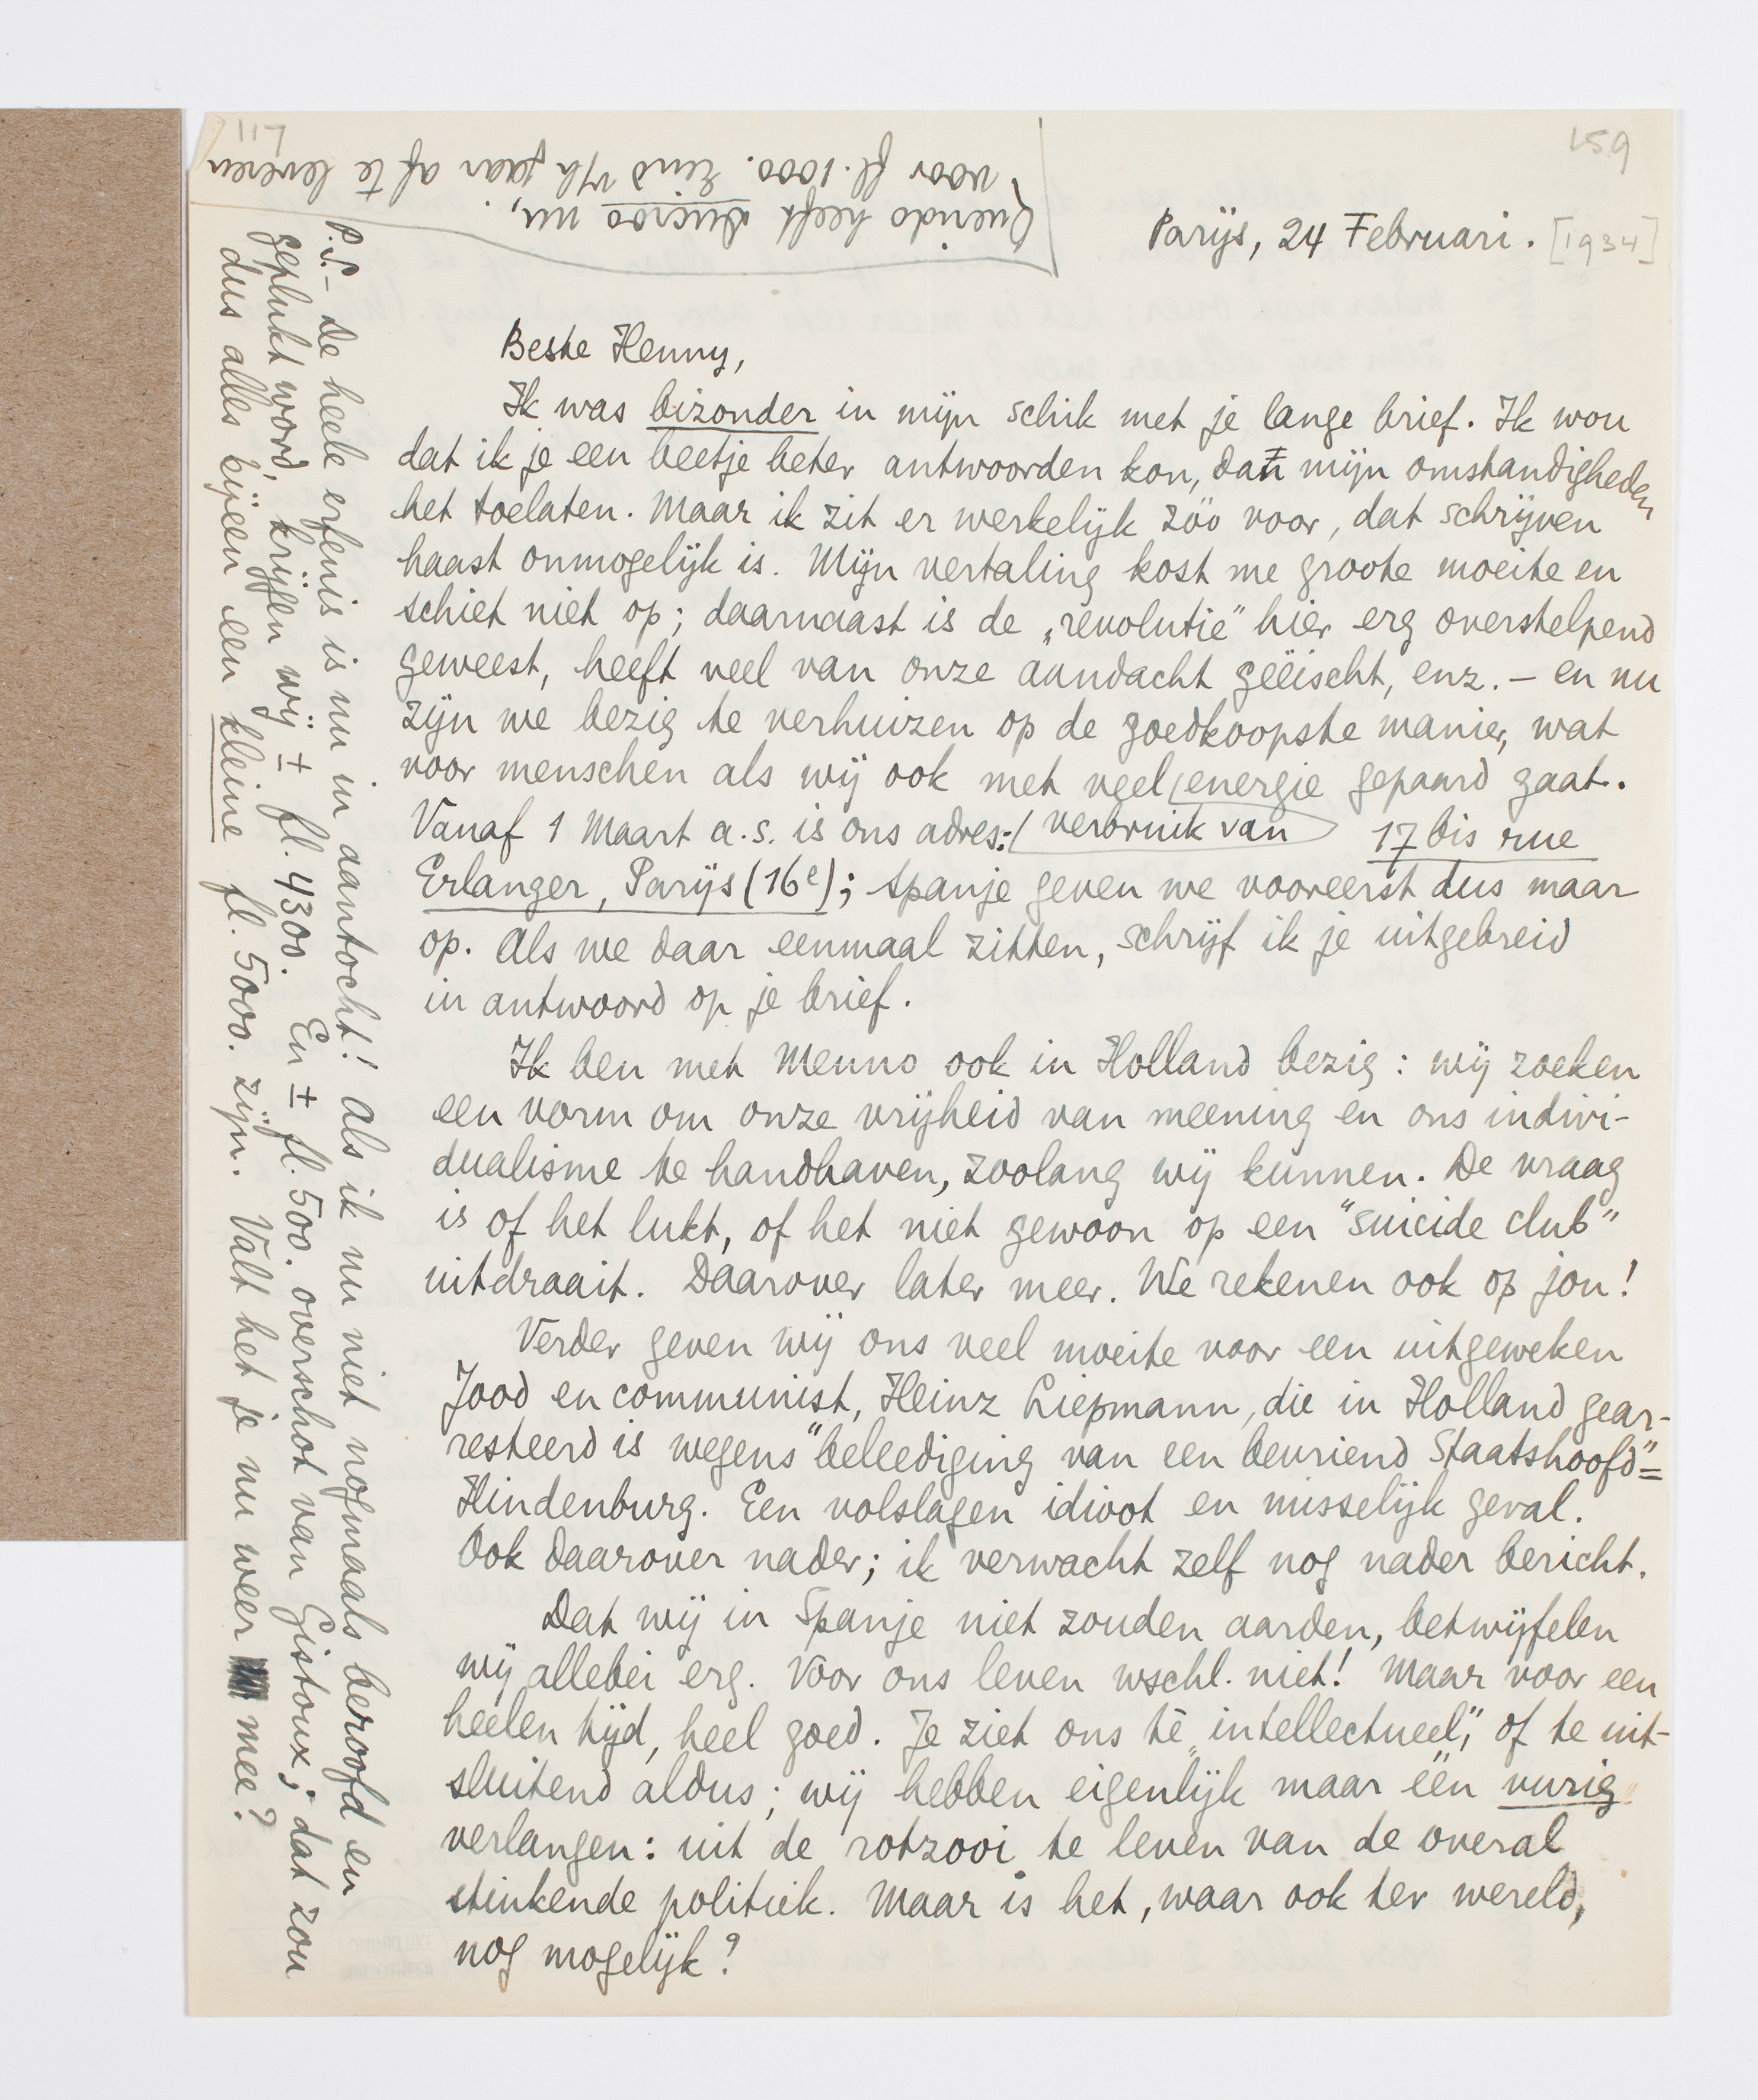 117
159
Parijs, 24 Februari. [1934]
Beste Henny,
Ik was bizonder in mijn schik met je lange brief. Ik wou
dat ik je een beetje beter antwoorden kon, dan mijn omstandigheden
het toelaten. Maar ik zit er werkelijk zóó voor, dat schrijven
haast onmogelijk is. Mijn vertaling kost me groote moeite en
schiet niet op; daarnaast is de „revolutie” hier erg overstelpend
geweest, heeft veel van onze aandacht geëischt, enz. – en nu
zijn we bezig te verhuizen op de goedkoopste manier, wat
voor menschen als wij ook met veel energie gepaard gaat.
verbruik van
Vanaf 1 Maart a.s. is ons adres: 17 bis rue
Erlanger, Parijs (16e); Spanje geven we vooreerst dus maar
op. Als we daar eenmaal zitten, schrijf ik je uitgebreid
in antwoord op je brief.
Ik ben met Menno ook in Holland bezig: wij zoeken
een vorm om onze vrijheid van meening en ons indivi-
dualisme te handhaven, zoolang wij kunnen. De vraag
is of het lukt, of het niet gewoon op een “suicide club”
uitdraait. Daarover later meer. We rekenen ook op jou!
Verder geven wij ons veel moeite voor een uitgeweken
Jood en communist, Heinz Liepmann, die in Holland gear-
resteerd is wegens “beleediging van een bevriend Staatshoofd” =
Hindenburg. Een volslagen idioot en misselijk geval.
Ook daarover nader; ik verwacht zelf nog nader bericht.
Dat wij in Spanje niet zouden aarden, betwijfelen
wij allebei erg. Voor ons leven wschl. niet! Maar voor een
heelen tijd, heel goed. Je ziet ons té „intellectueel”, of te uit-
sluitend aldus; wij hebben eigenlijk maar één vurig
verlangen: uit de rotzooi te leven van de overal
stinkende politiek. Maar is het, waar ook ter wereld,
nog mogelijk?
P.S. – De heele erfenis is nu in aantocht! Als ik nu niet nogmaals beroofd en
geplukt word, krijgen wij ± fl. 4300. En ± fl. 500. overschot van Gistoux; dat zou
dus alles bijeen een kleine fl. 5000. zijn. Valt het je nu weer mee?
Querido heeft Ducroo nu,
voor fl. 1000. Eind v/h jaar af te leveren